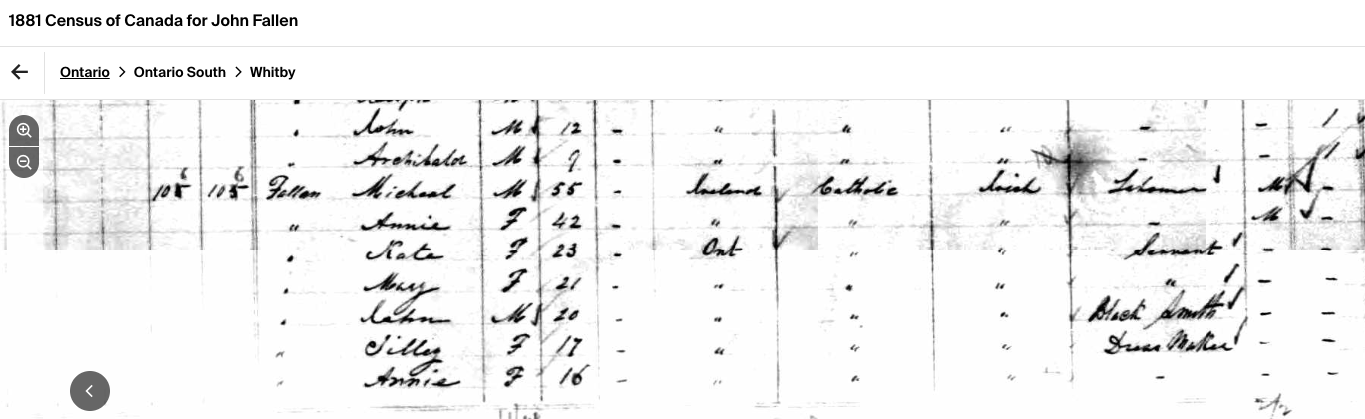 1881 Census of Canada for John Fallen
Ontario > Ontario South > Whitby
" John M 12 - " " " - - 1
" Archibald M 9 - " " " - - 1
106 106 Fallen Michael M 55 - Ireland Catholic Irish Labourer M -
" Annie F 42 - " " " - M -
" Kate F 23 - Ont " " Servant - -
" Mary F 21 - " " " " - -
" John M 20 - " " " Black Smith - -
" Tilley F 17 - " " " Dress Maker - -
" Annie F 16 - " " " - - -